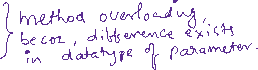 method overloading,
becoz, difference exists
in datatype of parameter.